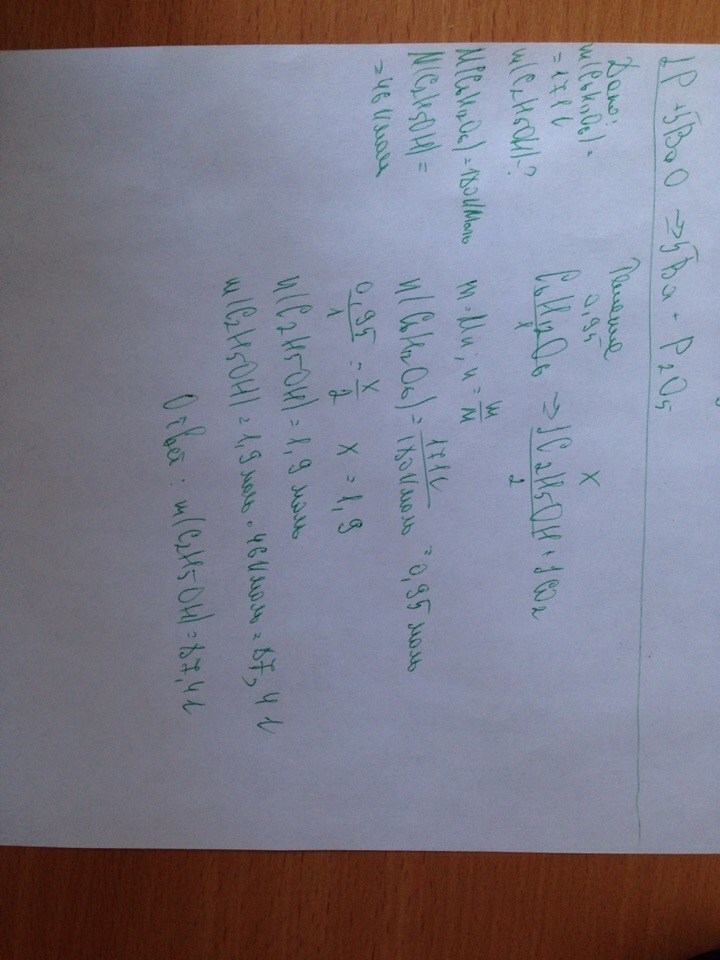 2P + 5BaO => 5Ba + P2O5
Дано:
m(C6H12O6) =
= 171 г
m(C2H5OH)-?
M(C6H12O6) = 180 г/моль
M(C2H5OH) =
= 46 г/моль
Решение
0,95 x
C6H12O6 => 2C2H5OH + 2CO2
1 2
m = Mn; n = m/M
n(C6H12O6) = 171 г / 180 г/моль = 0,95 моль
0,95/1 = x/2 x = 1,9
n(C2H5OH) = 1,9 моль
m(C2H5OH) = 1,9 моль · 46 г/моль = 87,4 г
Ответ: m(C2H5OH) = 87,4 г